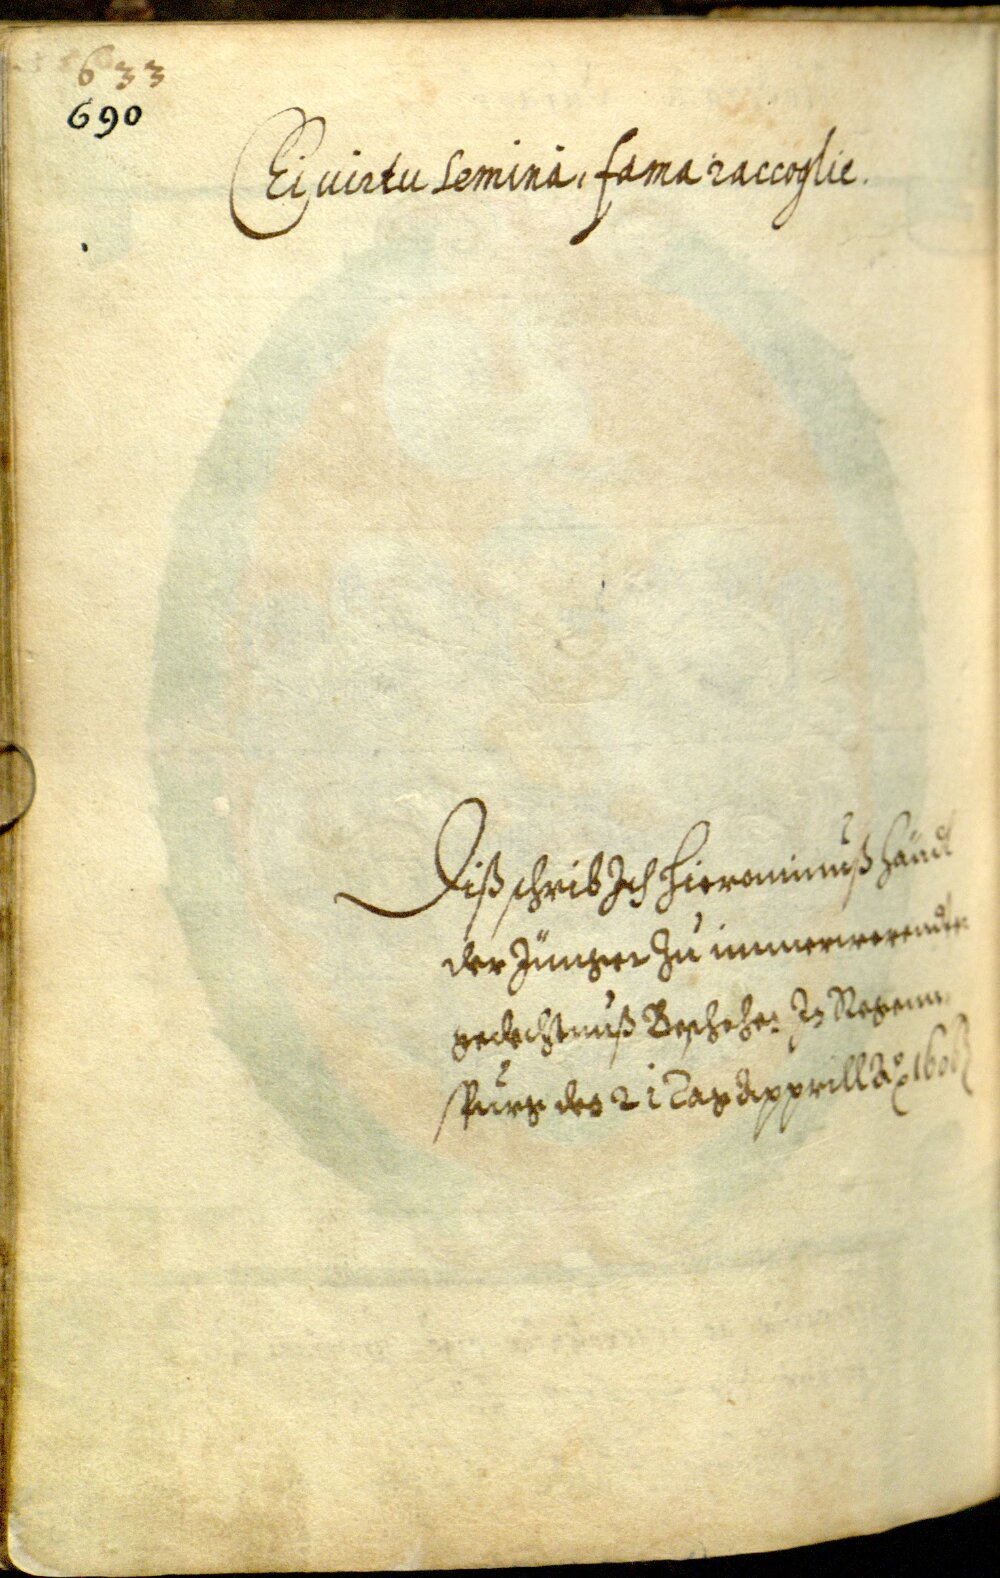 633
690
Ei uirtu semina, fama raccoglie.
Diß schrib Ich Hieronimuß Händl
der Jünger Zu immerwerendter
gedechtnuß Beschehen In Regenn
spurg den 21 Tag Apprill Ao